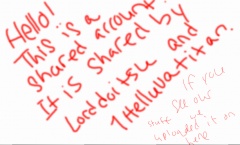 Hello!
This is a
shared account.
It is shared by
Lorddoitsu and
1Helluvatitan.
if you
see our
we
uploaded it on
here